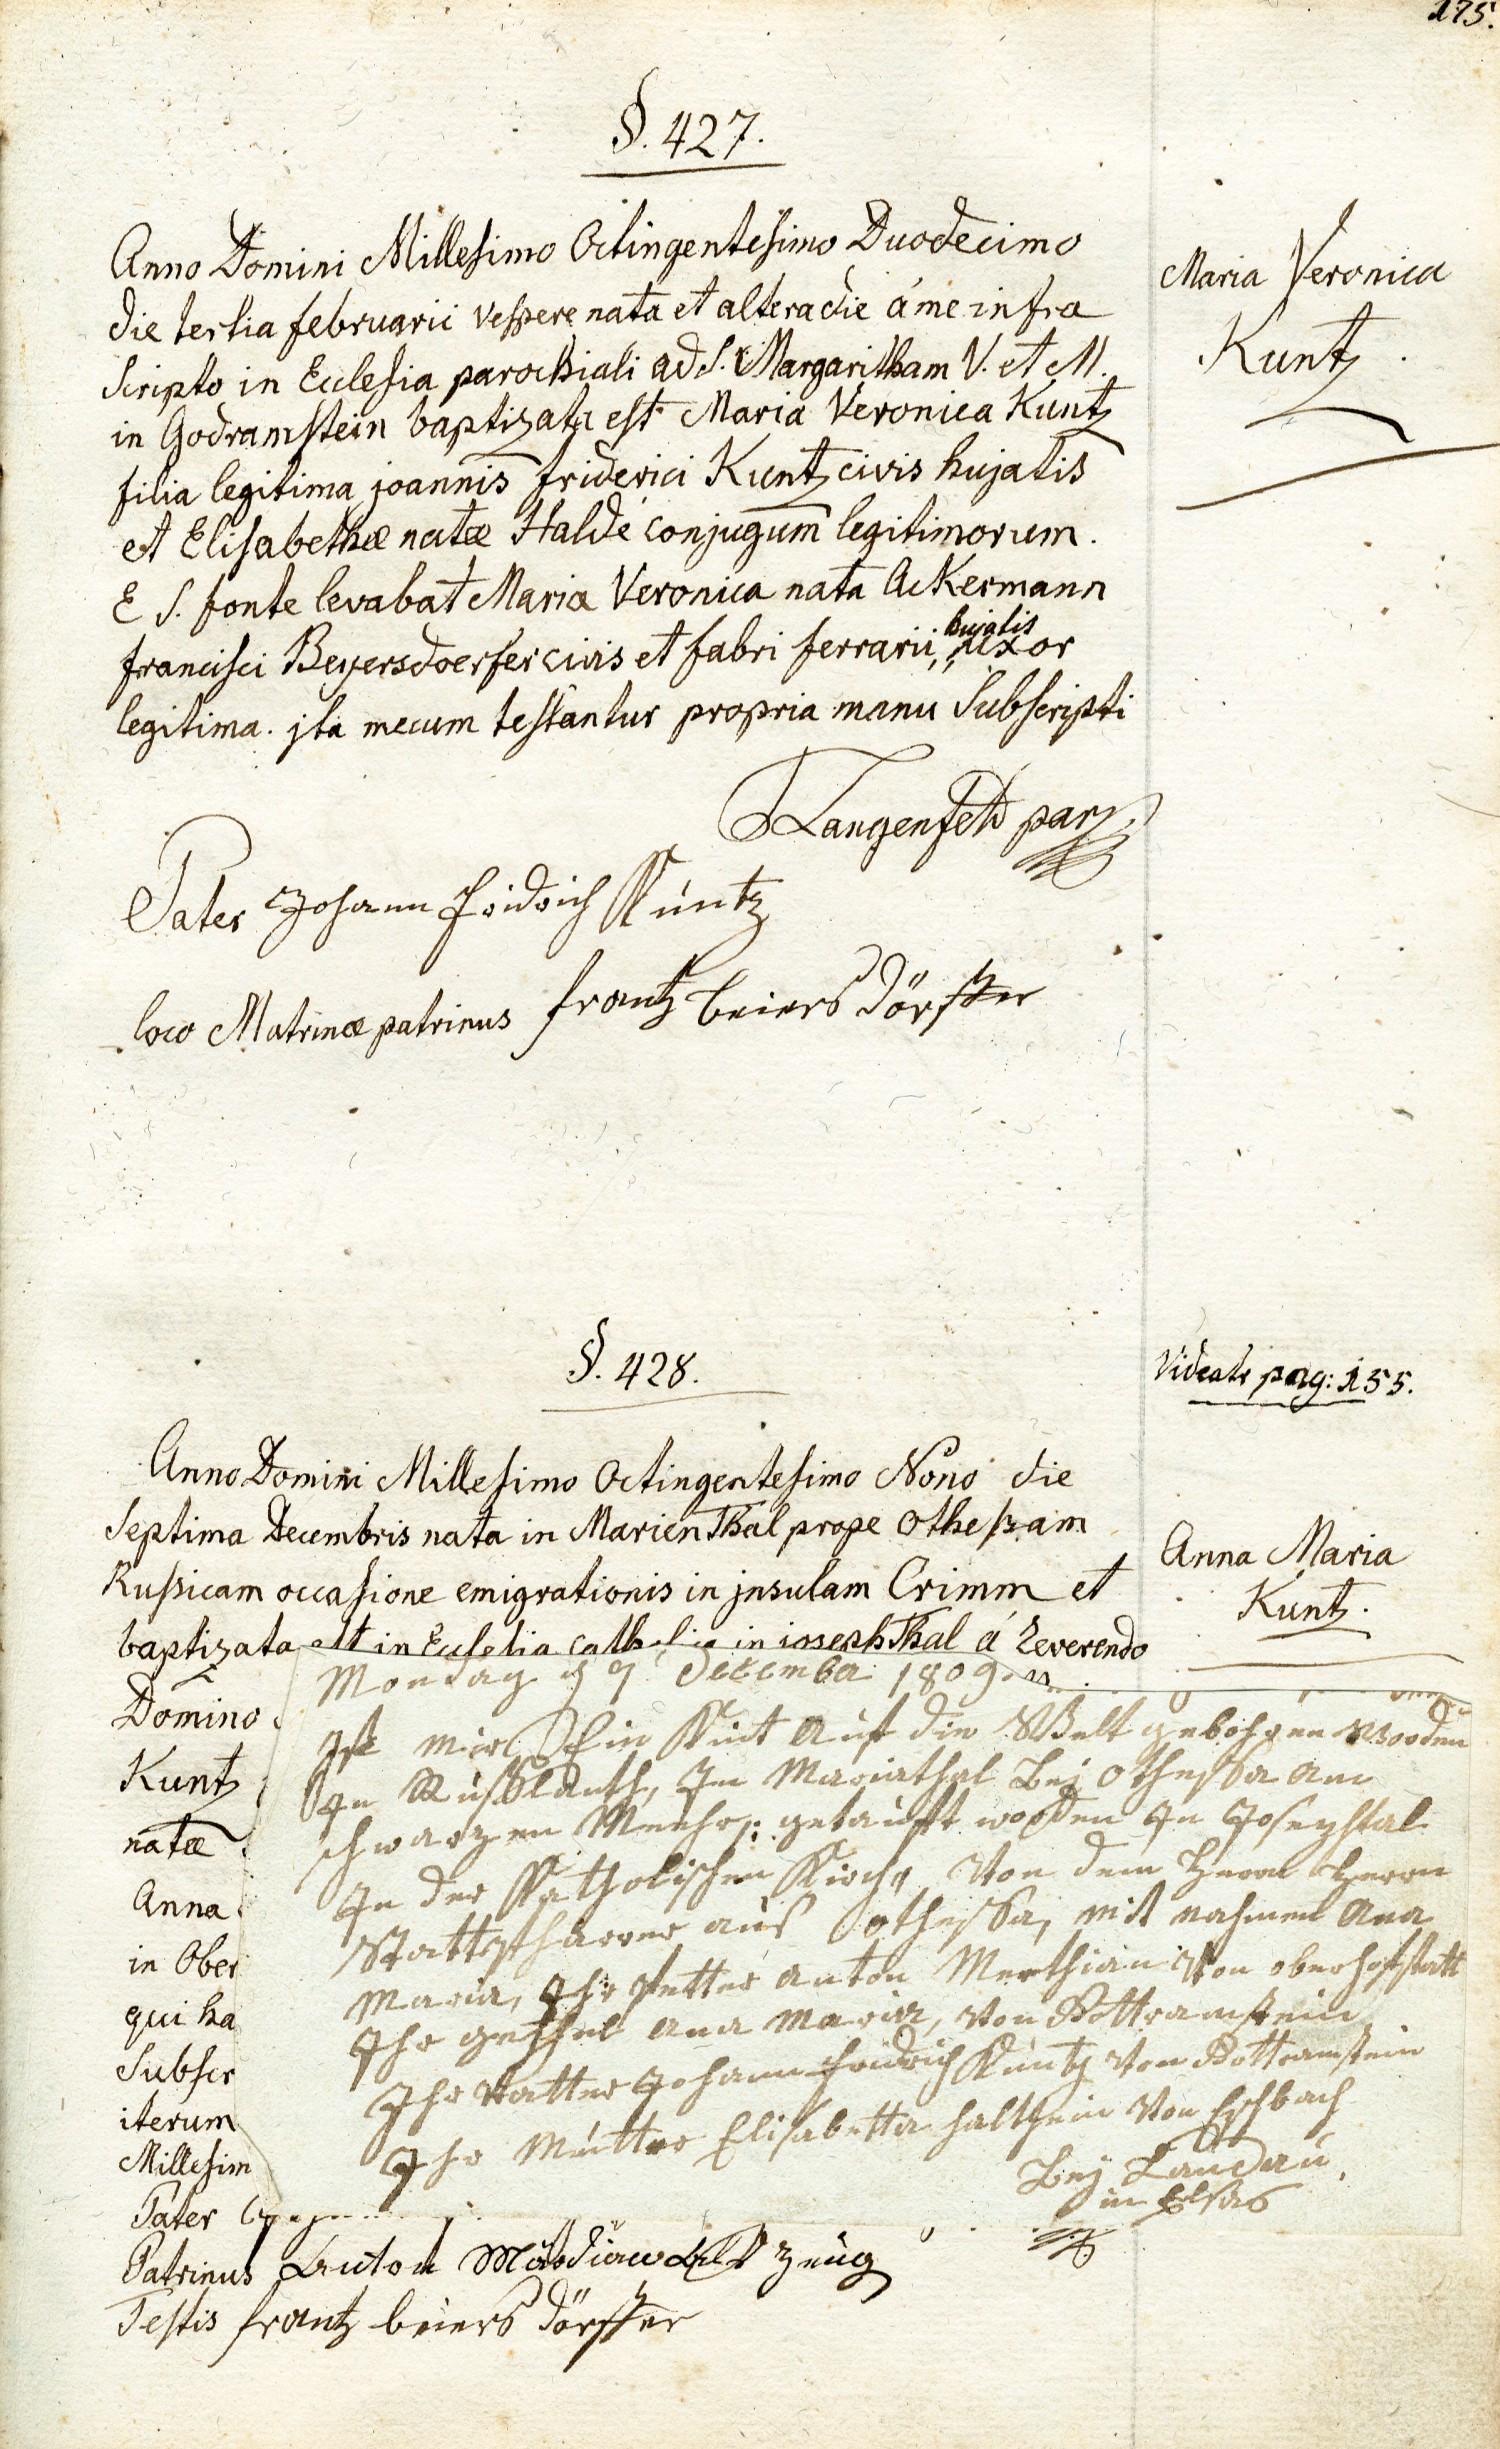 175.
§. 427.
Anno Domini Millesimo Octingentesimo Duodecimo
die tertia februarii vespere nata et altera die á me infra
scripto in Ecclesia parochiali ad S. Margaritham V. et M.
in Godramstein baptizata est Maria Veronica Kuntz
filia legitima joannis friderici Kuntz civis hujatis
et Elisabethæ natæ Haldé conjugum legitimorum.
E S. fonte levabat Maria Veronica nata Ackermann
francisci Beyersdoerfer civis et fabri ferrarii hujatis uxor
legitima. jta mecum testantur propria manu subscripti
Langenfeld par.
Pater Johann fridrich Kuntz
loco Matrinæ patrinus frantz beiersdörffer
Maria Veronica
Kuntz.
§. 428.
Videatr pag: 155.
Anno Domini Millesimo Octingentesimo Nono die
Septima Decembris nata in MarienThal prope Otheßam
Rußicam occasione emigrationis in jnsulam Crimm et
baptizata est in Ecclesia catholica in josephThal á Reverendo
Anna Maria
Kuntz.
Domino
Kuntz
natæ
Anna
in Ober
qui ha
Subscr
iterum
Millesim
Pater
Montag d 7 Decembr 1809.
Ist mir Ein Kint auf die Welt gebohren worden
In Rußlanth, Im Mariathal bej Othessa am
schwarzen Meehr, getauft worden In Josephstal
In der Katholischen Kirch, Von dem Herrn Herrn
Stattpfharrer aus Othessa, mit nahmen ana
Maria, Ihr Petter anton Merthian Von oberhofstatt
Ihr gethel ana maria, von Gottramstein
Ihr Vatter Johann fridrich Kuntz von Gottramstein
Ihr Mutter Elisabetta halthein von Eschbach
bej Landau,
in Elsas
Patrinus Anton Mardian als Zeug
Testis frantz beiersdörffer